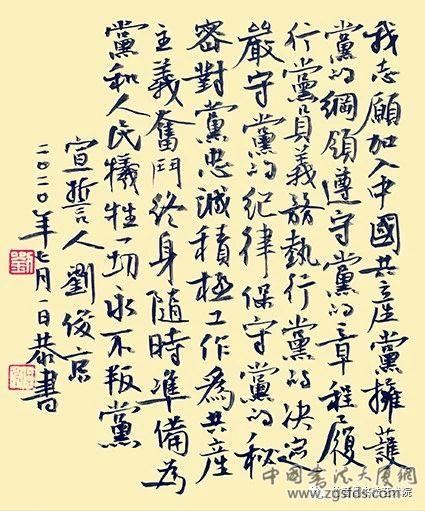 我志願加入中國共産黨擁護
黨的綱領遵守黨的章程履
行黨員義務執行黨的决定
嚴守黨的纪律保守黨的秘
密對黨忠誠積極工作為共産
主義奮鬥终身隨時準備为
黨和人民犧牲一切永不叛黨
宣誓人劉俊京
二〇二〇年七月一日恭書
劉
中國书法大厦網
www.zgsfds.com